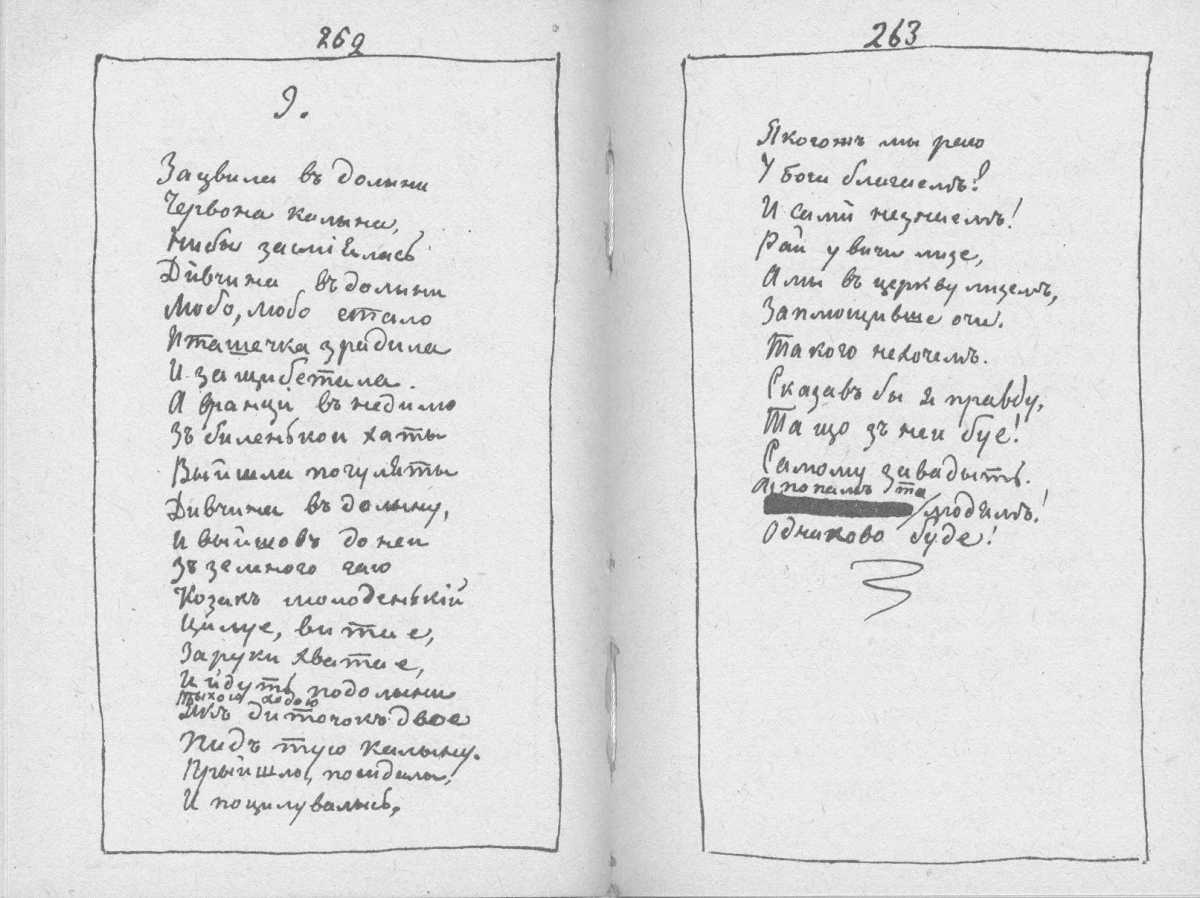 262
9.
Зацвила въ долыни
Червона калына,
Ниби засміялась
Дівчина въ долыни
Любо, любо стало
Пташечка зрадила
И защибетала.
А вранці въ недилю
Зъ биленькои хаты
Выйшла погуляты
Дивчина въ долыну,
И выйшовъ до неи
Зъ зеленого гаю
Козакъ молоденькій
Цилуе, витае,
За руки хватае,
И йдуть по долыни
тыхою ходою
Якъ диточокъ двое
Пидъ тую калыну.
Прыйшлы, посидалы,
И поцилувались,
263
Якогожъ мы раю
У бога благаемъ?
И самі незнаемъ!
Рай у вичи лизе,
А мы въ церкву лиземъ,
Заплющивше очи.
Такого нехочемъ.
Сказавъ бы я правду,
Та що зъ неи буе!
Самому завадыть.
А попамъ та
людямъ!
Однаково буде!